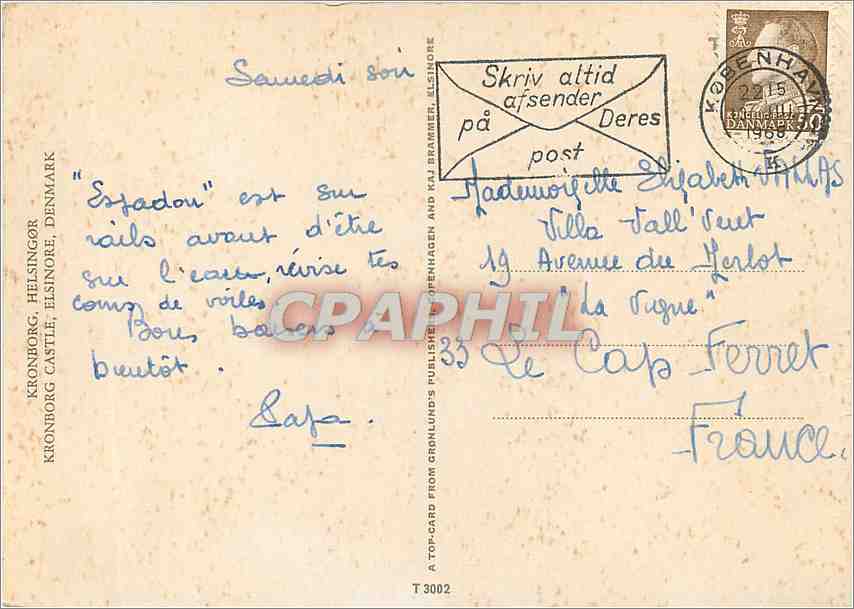 Samedi soir
"Espadon" est sur
rails avant d'être
sur l'eau, révise tes
de voiles
Bons baisers à
bientôt.
Papa.
KRONBORG, HELSINGØR
KRONBORG CASTLE, ELSINORE, DENMARK
A TOP-CARD FROM GRØNLUND'S PUBLISHERS, COPENHAGEN AND KAJ BRAMMER, ELSINORE
T 3002
Skriv altid
afsender
på Deres
post
KØBENHAVN
22 15
1968
K
DANMARK 50
Mademoiselle Elizabeth
Villa Vall'Vert
19 Avenue du Merlot
"La Vigne"
33 Le Cap Ferret
France.
CPAPHIL